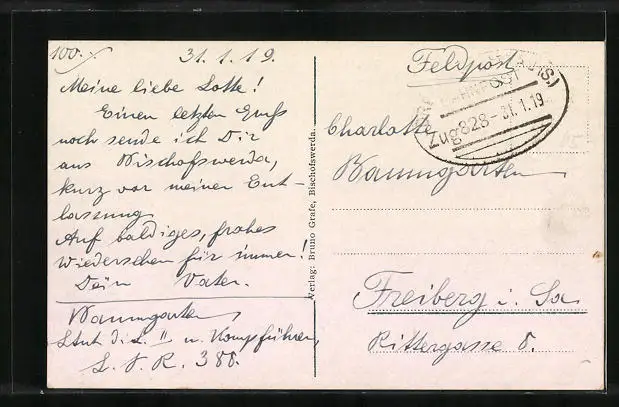 100.
31.1.19.
Meine liebe Lotte!
Einen letzten Gruß
noch sende ich Dir
aus Bischofswerda,
kurz vor meiner Ent-
lassung
Auf baldiges, frohes
Wiedersehen für immer!
Dein Vater.
Baumgarten
u. Kompführer,
L. I. R. 388.
Verlag: Bruno Grafe, Bischofswerda.
Feldpost
BAHNPOST
Zug 828 - 31.1.19
Charlotte
Baumgarten
Freiberg i. Sa
Rittergasse 8.